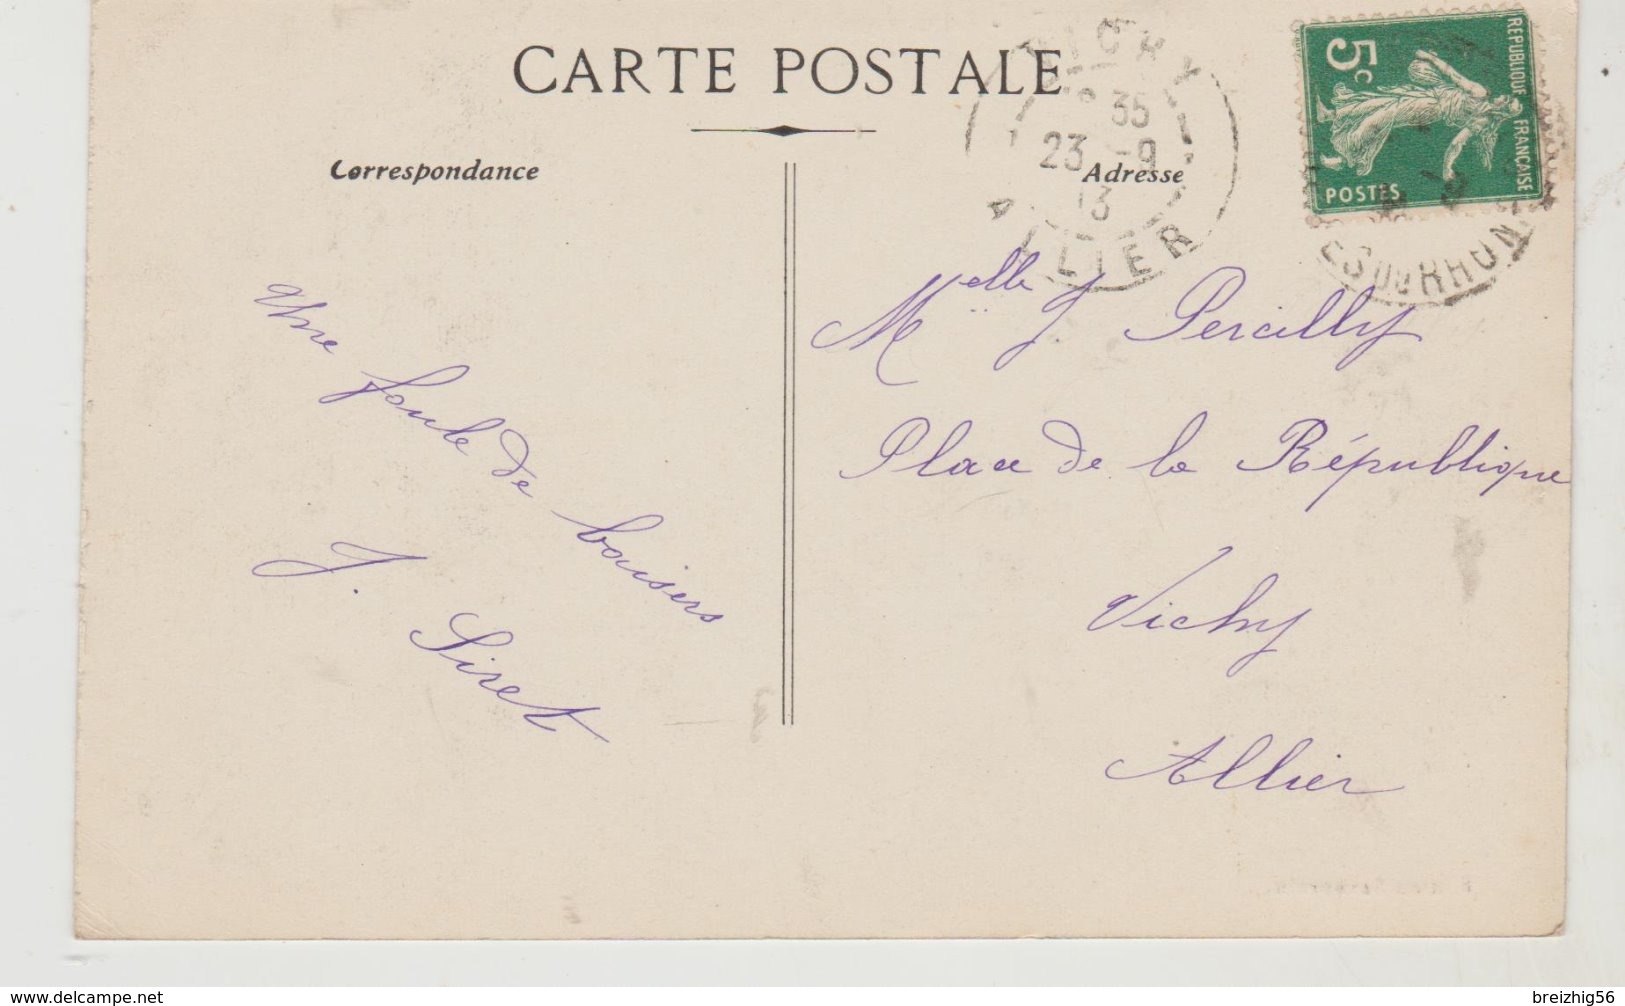 CARTE POSTALE
Correspondance
Adresse
VICHY
35
23 -9
13
ALLIER
REPUBLIQUE FRANÇAISE
5c
POSTES
ES DU RHON
Une
foule de
baisers
J. Siret
Melle J. Percilly
Place de la République
Vichy
Allier
www.delcampe.net
breizhig56